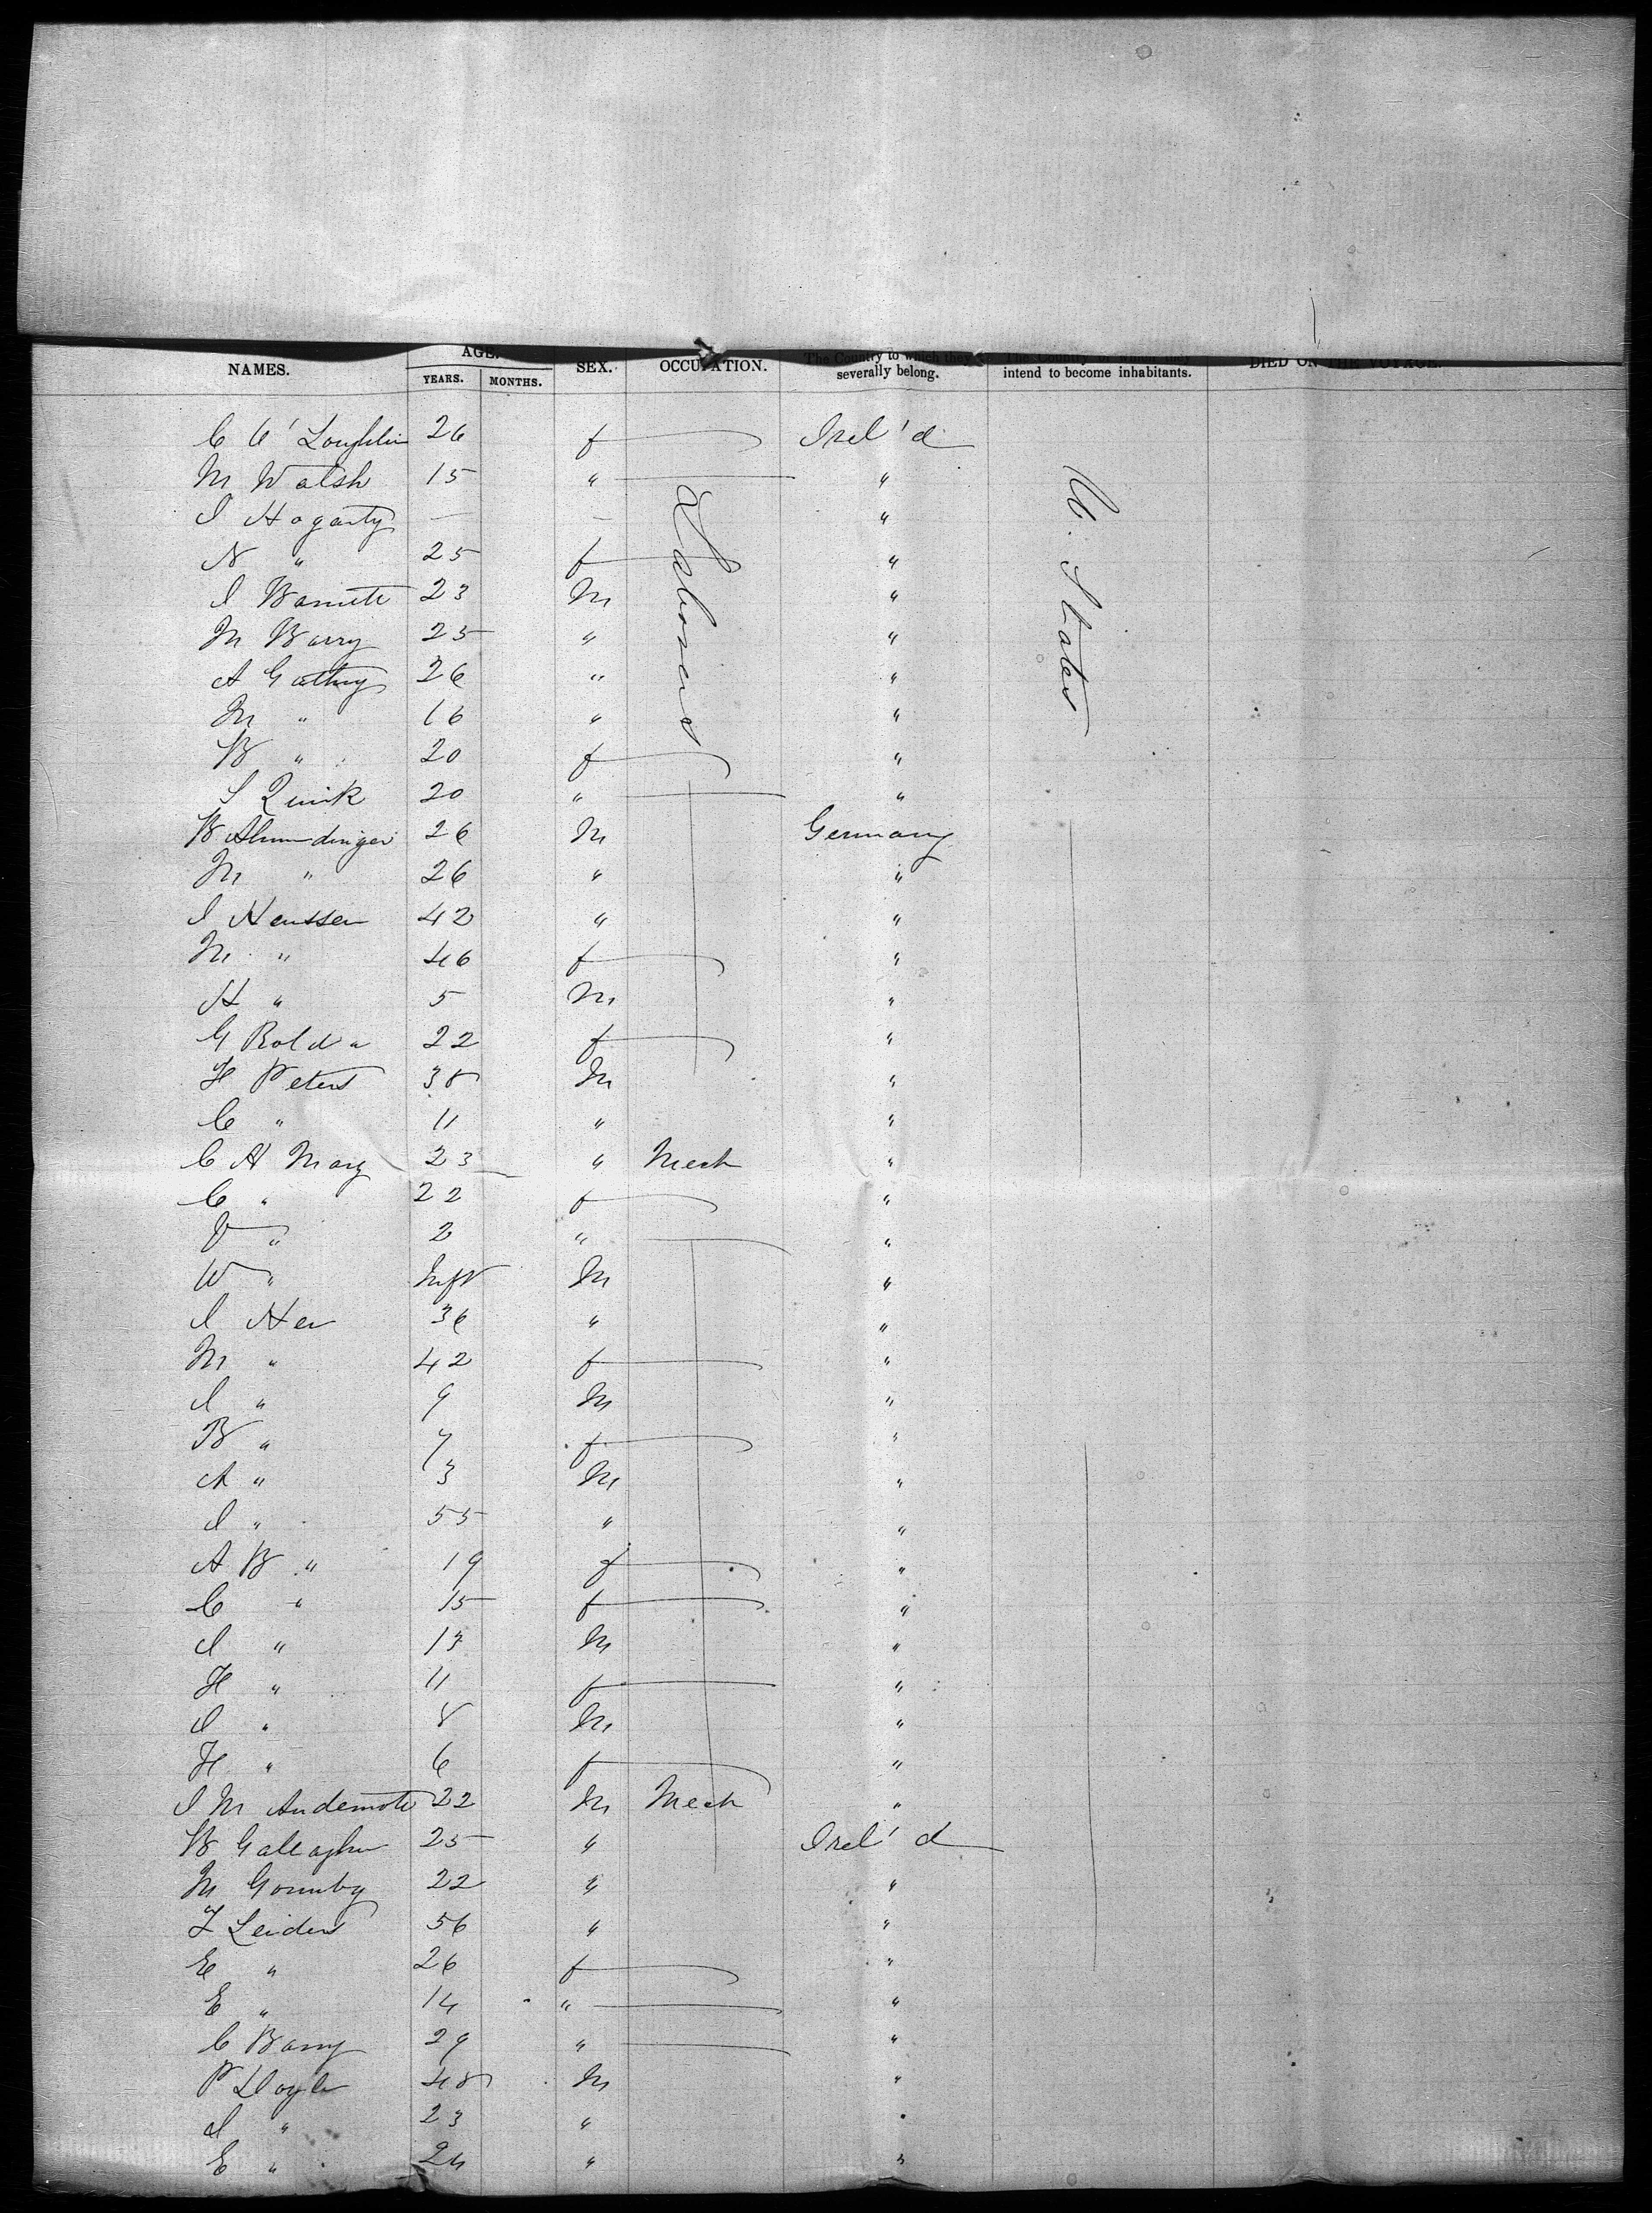 NAMES. AGE. YEARS. MONTHS. SEX. OCCUPATION. The Country to which they severally belong. intend to become inhabitants. DIED ON THE VOYAGE.
C O'Loughlin 26 f Irel'd
M Walsh 15 " "
I Hogarty — — "
N " 25 f "
I 23 M "
M Barry 25 " "
A 26 " "
M " 16 " "
B " 20 f "
S Quirk 20 " "
Labourers
U. States
B 26 M Germany
M " 26 " "
I Henssen 42 " "
M " 46 f "
H " 5 M "
G 22 f "
H Peters 38 M "
C " 11 " "
C H May 23 " Mech "
C " 22 f "
" 2 " "
W " Inft M "
I Her 36 " "
M " 42 f "
I " 9 M "
B " 7 f "
A " 3 M "
I " 55 " "
A B " 19 f "
C " 15 f "
I " 13 M "
H " 11 f "
I " 8 M "
H " 6 f "
I M 22 M Mech "
B Gallagher 25 " Irel'd
M 22 " "
Leiders 56 " "
E " 26 f "
E " 14 " "
C Barry 29 " "
P Doyle 48 M "
I " 23 " "
E " 24 " "